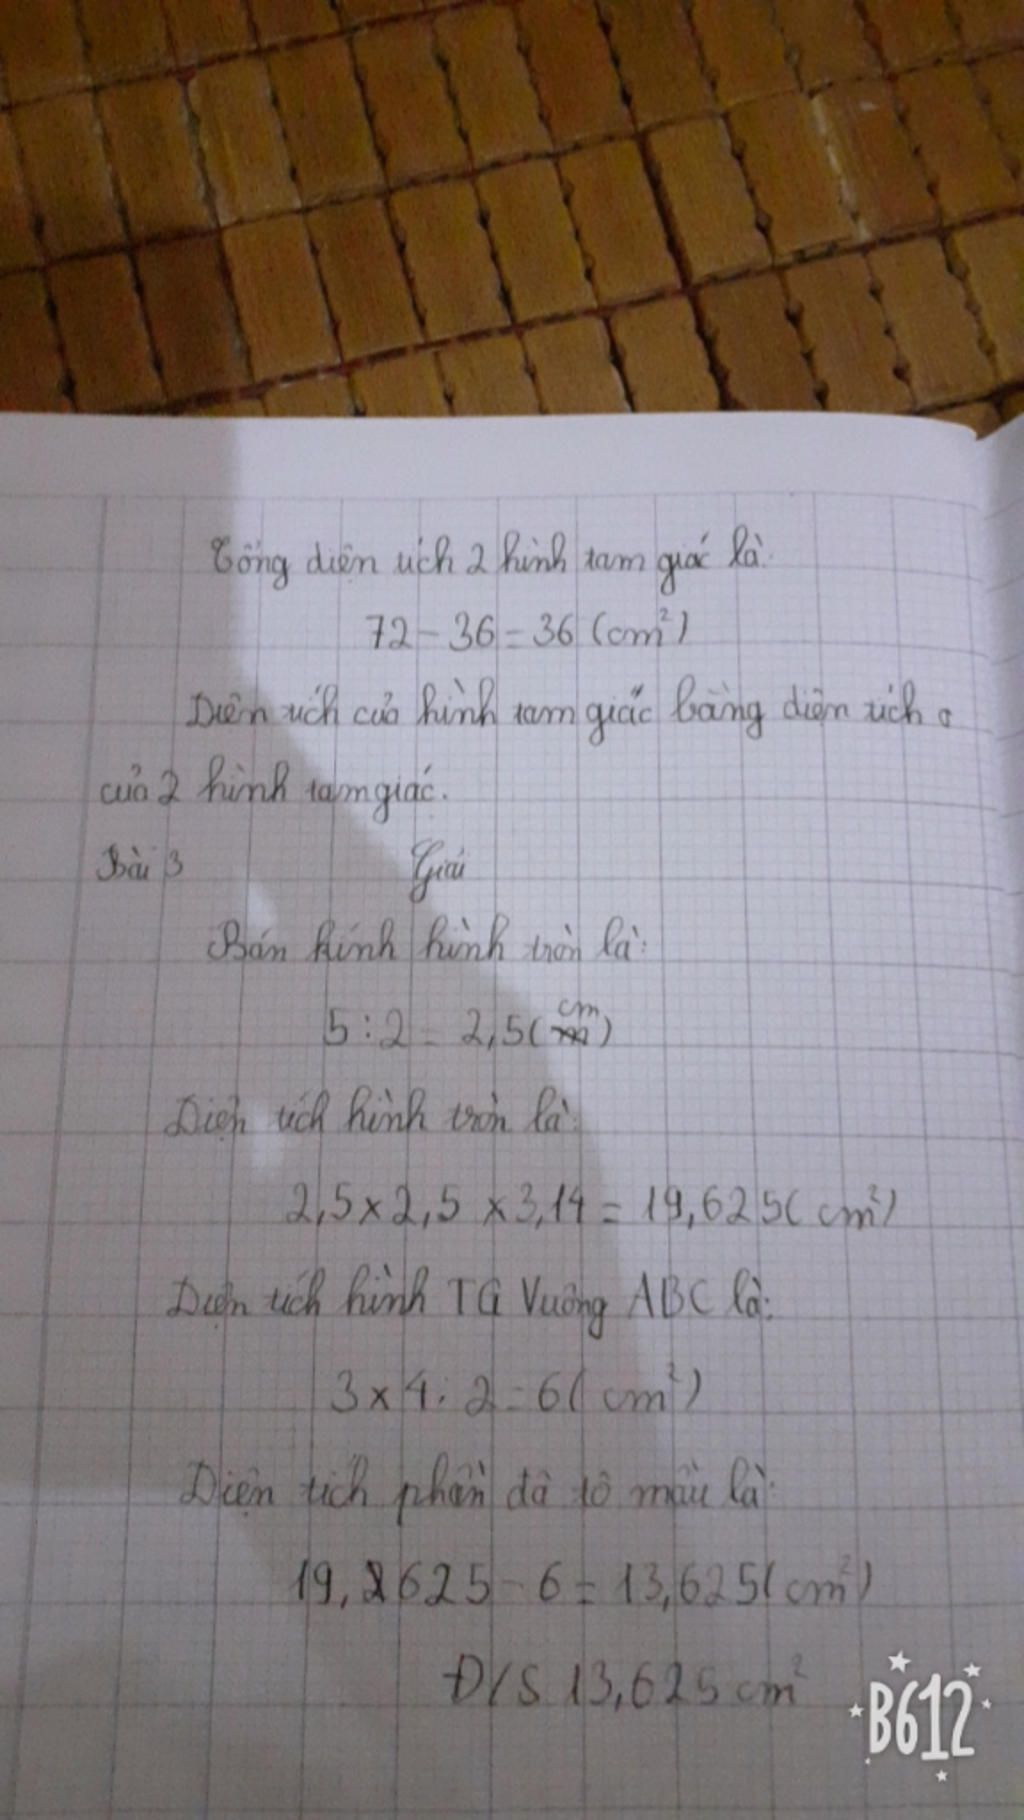 Tổng diện tích 2 hình tam giác là:
72 - 36 = 36 (cm²)
Diện tích của hình tam giác bằng diện tích
của 2 hình tam giác.
Bài 3 Giải
Bán kính hình tròn là:
5 : 2 = 2,5 (cm)
Diện tích hình tròn là:
2,5 x 2,5 x 3,14 = 19,625 (cm²)
Diện tích hình TG Vuông ABC là:
3 x 4 : 2 = 6 (cm²)
Diện tích phần đã tô màu là:
19,2625 - 6 = 13,625 (cm²)
Đ/S 13,625 cm²
B612